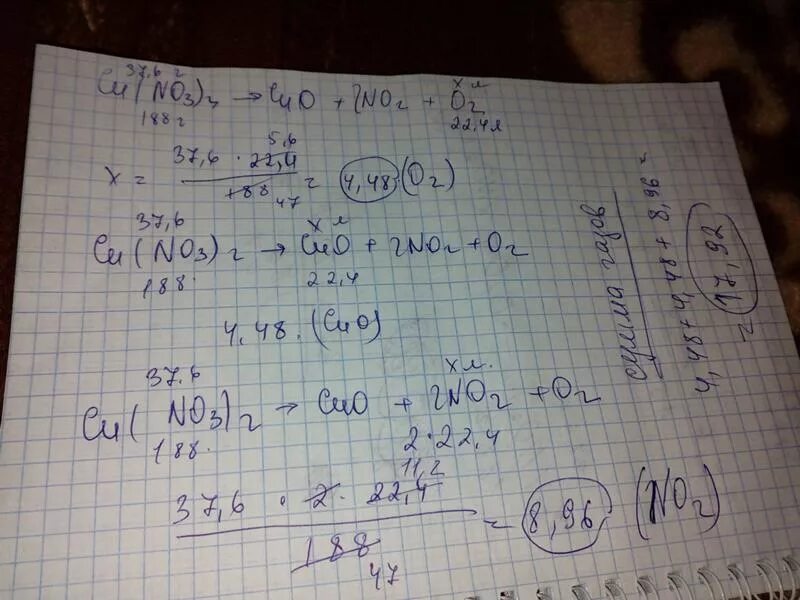 37,6 г
Cu(NO3)2 → CuO + 2NO2 + O2
188 г
x л
22,4 л
x = 37,6 · 22,4 / 188 = 4,48 (O2)
5,6
47
37,6
x л
Cu(NO3)2 → CuO + 2NO2 + O2
188.
22,4
4,48. (CuO)
37.6
x л.
Cu(NO3)2 → CuO + 2NO2 + O2
188.
2·22,4
11,2
37,6 · 2 · 22,4 / 188 = 8,96 (NO2)
47
сумма газов
4,48 + 4,48 + 8,96 =
= 17,92